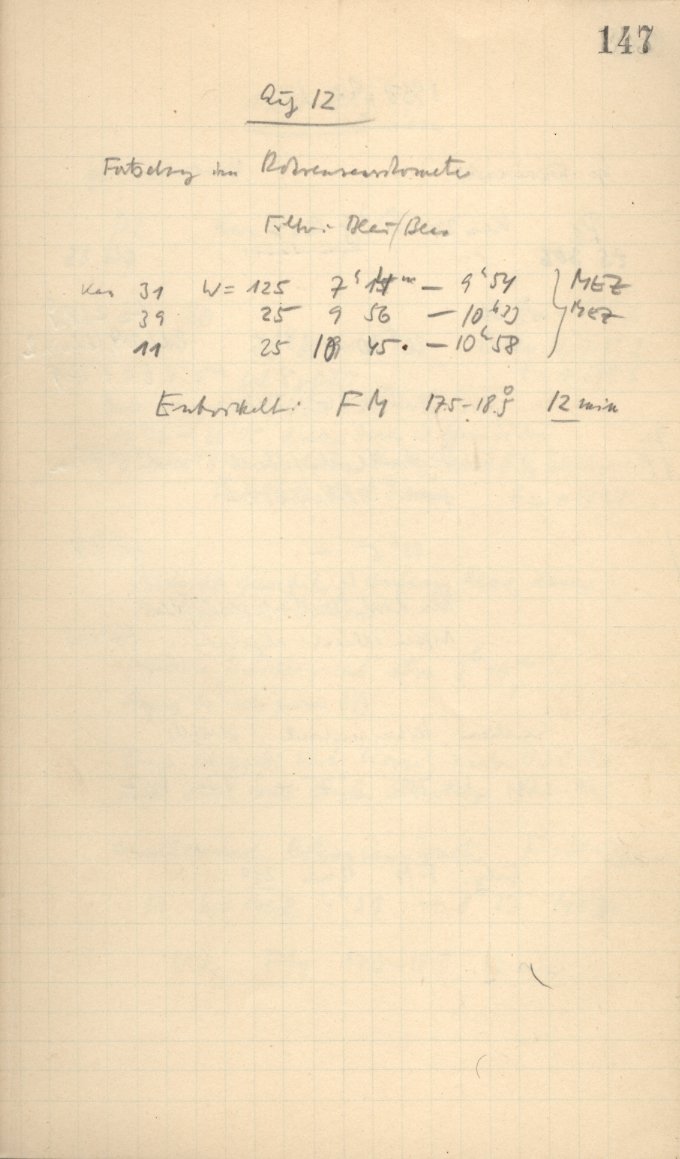 147
Aug 12
Fortsetzung im Röhrensensitometer
Filter: Blau/Blau
Kas 31 W = 125 7h 15m — 9h 54 } MEZ
39 25 9 56 — 10h 39 MEZ
11 25 10 45 — 10h 58
Entwickelt: FM 17.5-18.5° 12 min